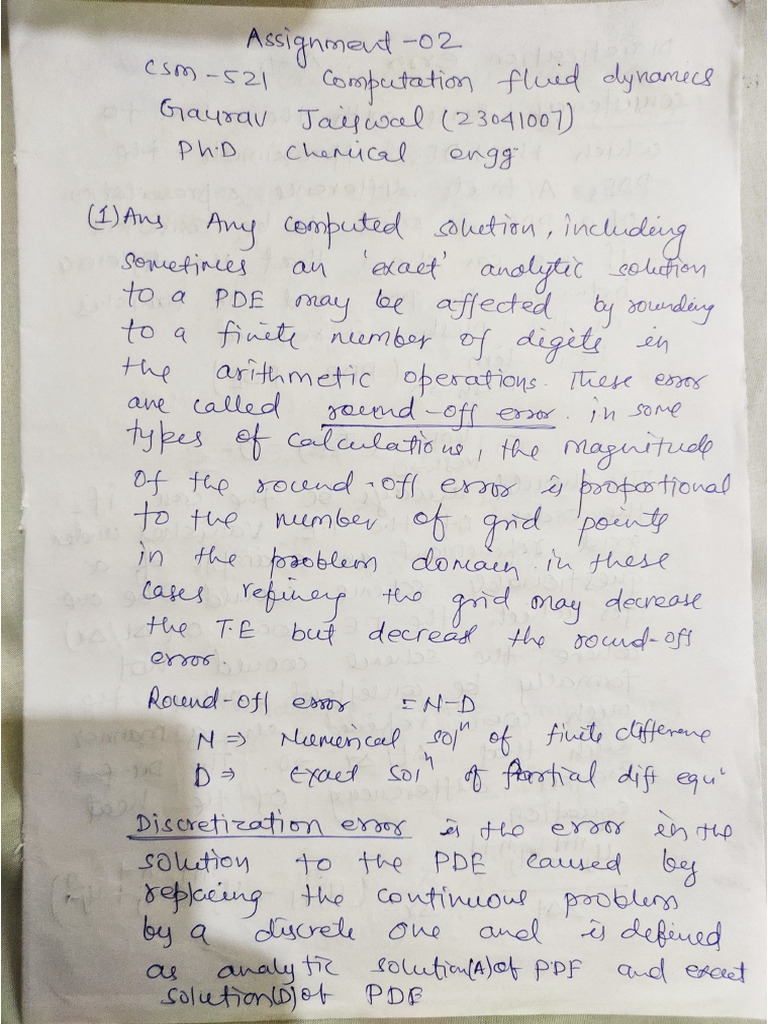 Assignment -02
CSM-521 Computation fluid dynamics
Gaurav Jaiswal (23041007)
Ph.D Chemical engg.
(1) Ans Any computed solution, including
sometimes an 'exact' analytic solution
to a PDE may be affected by rounding
to a finite number of digits in
the arithmetic operations. These error
are called round-off error. in some
types of calculations, the magnitude
of the round-off error is proportional
to the number of grid points
in the problem domain. in these
cases refining the grid may decrease
the T.E but decreas the round-off
error.
Round-off error = N-D
N ⇒ Numerical solⁿ of finite difference
D ⇒ Exact solⁿ of Partial diff equⁿ
Discretization error is the error in the
solution to the PDE caused by
replacing the continuous problem
by a discrete one and is defined
as analytic solution(A) of PDE and exact
solution(D) of PDE